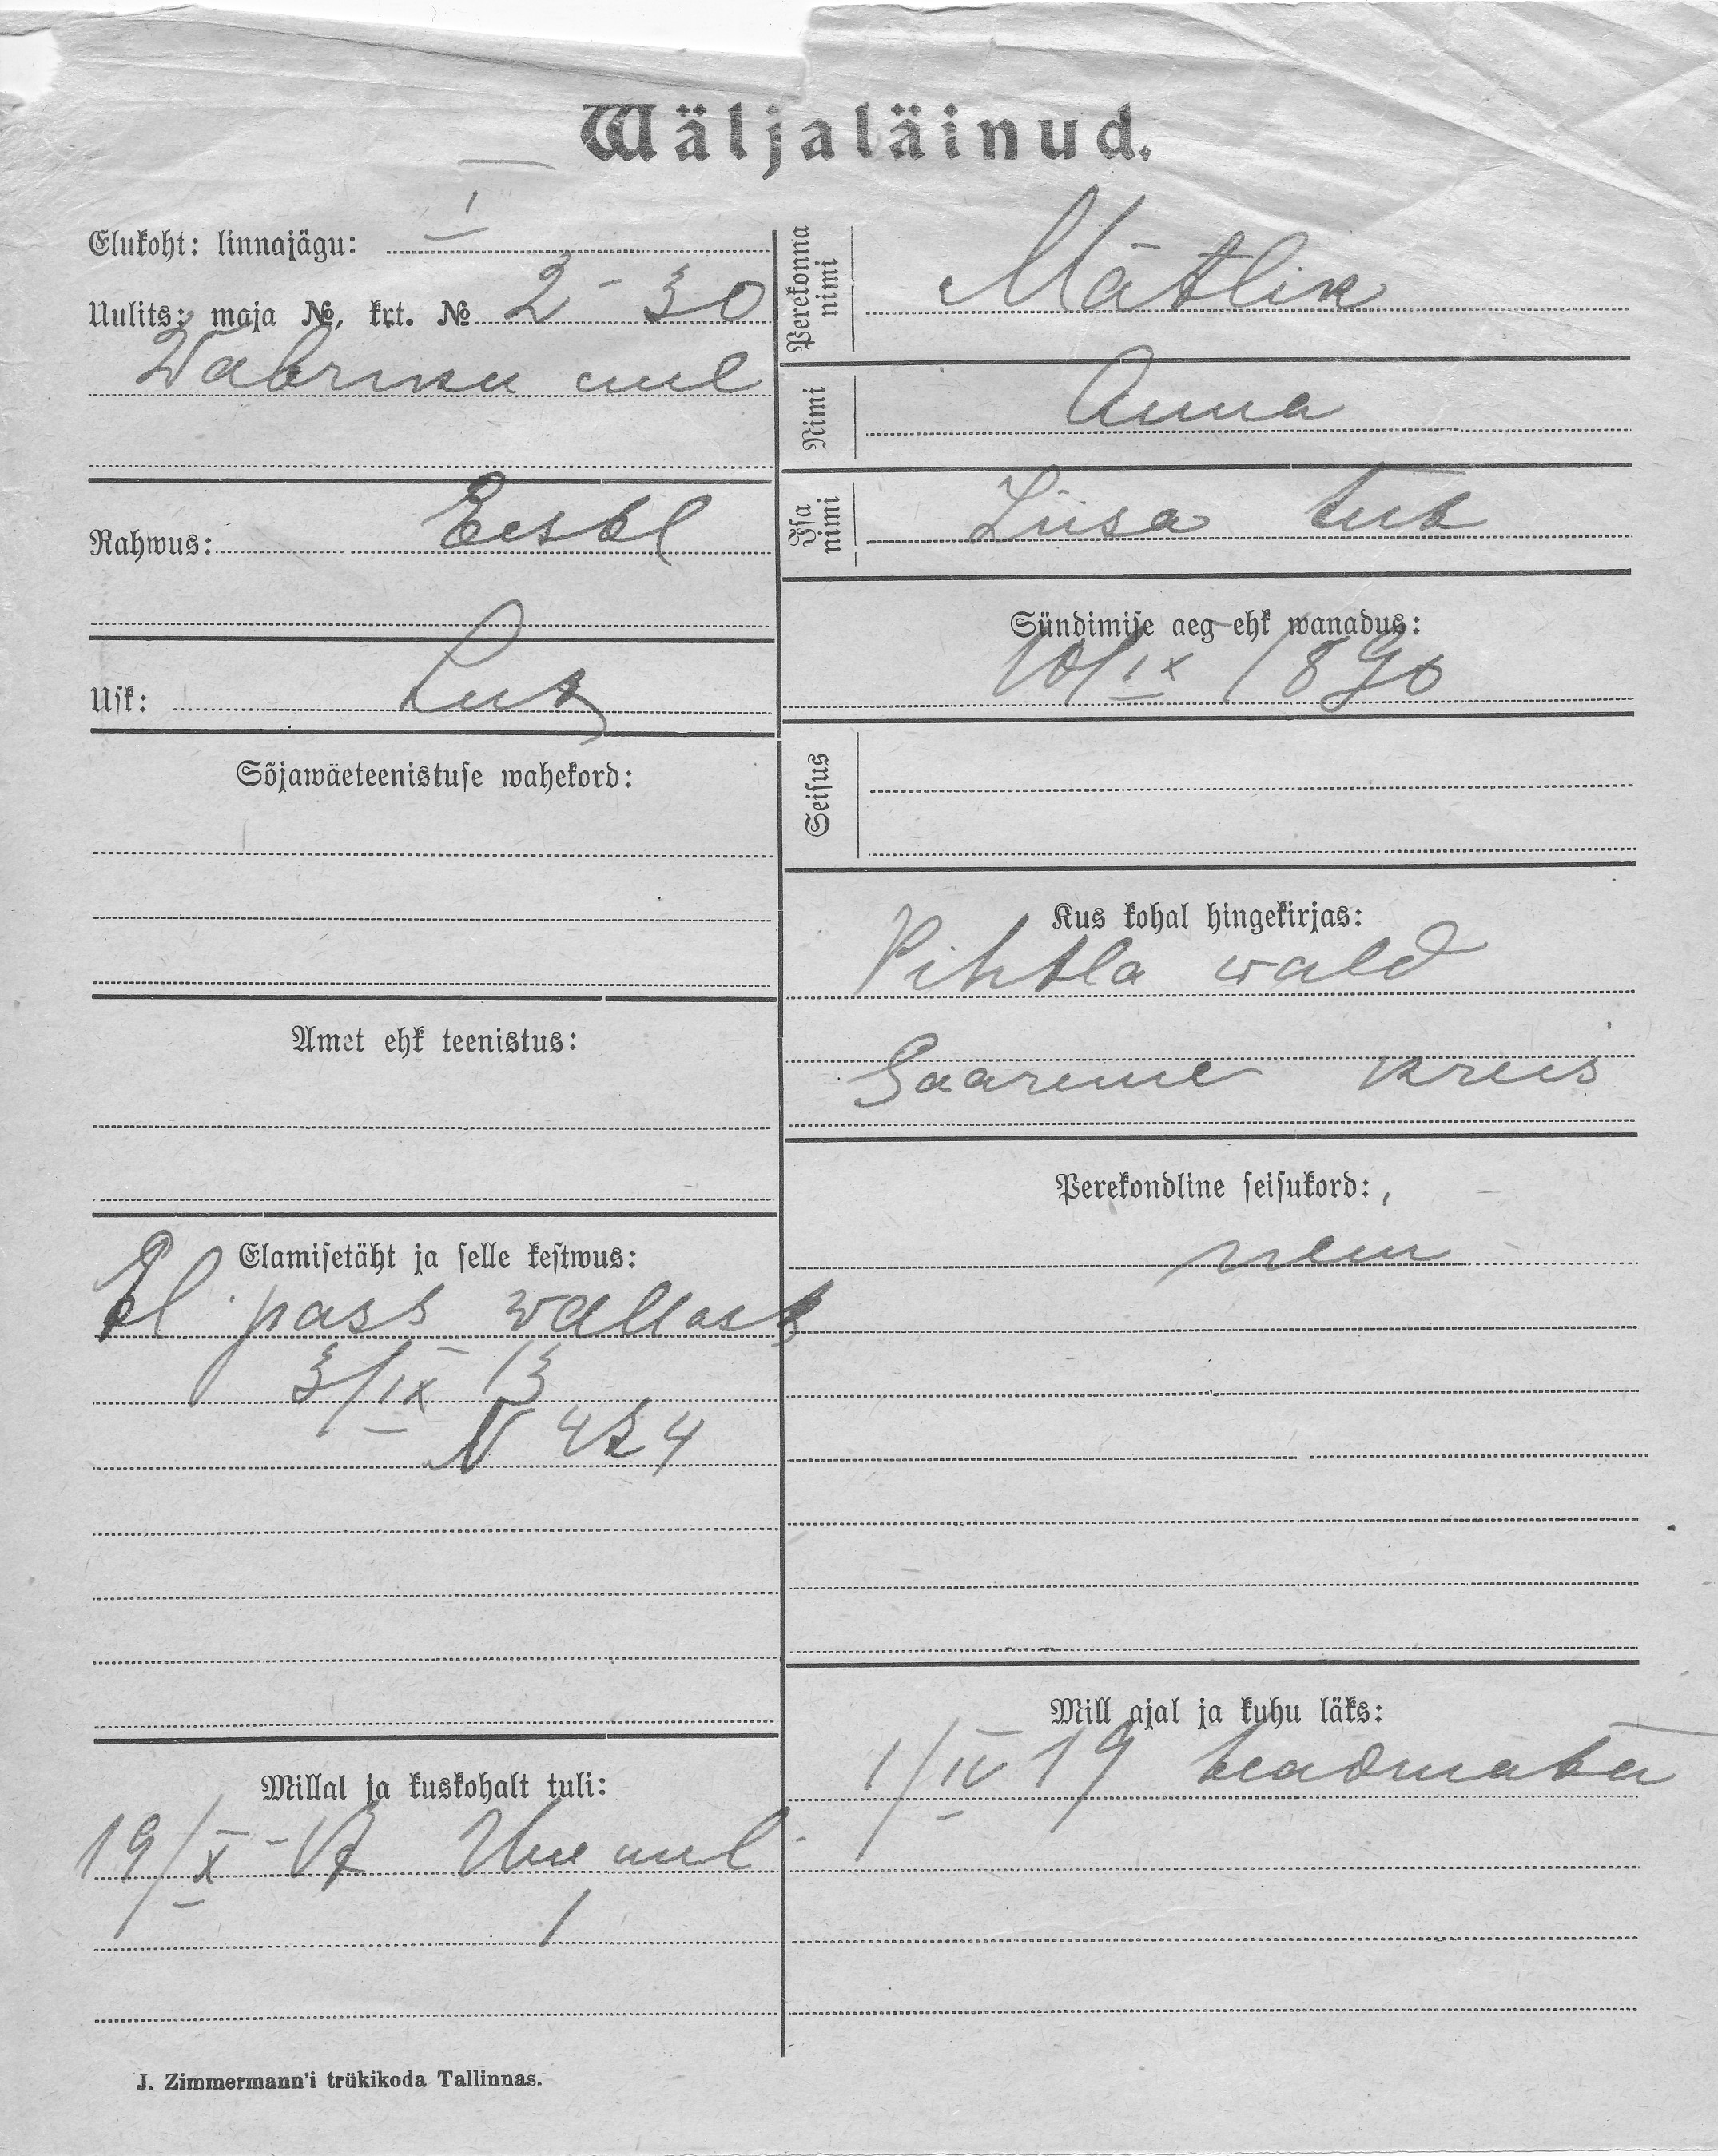 Wäljaläinud.
Elukoht: linnajägu: I
Uulits: maja №, krt. № 2 - 30
Wabriku uul
Rahwus: Eestl
Usk: Lut
Sõjawäeteenistuse wahekord:
Amet ehk teenistus:
Elamisetäht ja selle kestwus:
El pass wallast
3/IX 13
N 424
Millal ja kuskohalt tuli:
19/X - 17 Uue uul
1
J. Zimmermann'i trükikoda Tallinnas.
Perekonna nimi Mätlik
Nimi Anna
Isa nimi Liisa tut
Sündimise aeg ehk wanadus:
10/IX 1890
Seisus
Kus kohal hingekirjas:
Pihtla wald
Saareme kreis
Perekondline seisukord:
Mill ajal ja kuhu läks:
1/IV 19 teadmata